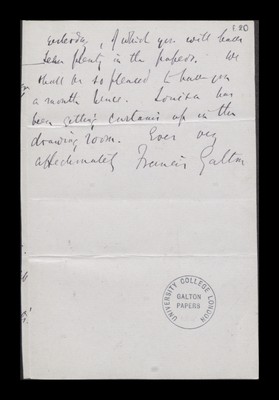 180
yesterday, of which you will have
seen plenty in the papers. We
shall be so pleased to have you
a month hence. Louisa has
been getting curtains up in the
drawing room. Ever very
affectionately Francis Galton
UNIVERSITY COLLEGE LONDON
GALTON
PAPERS